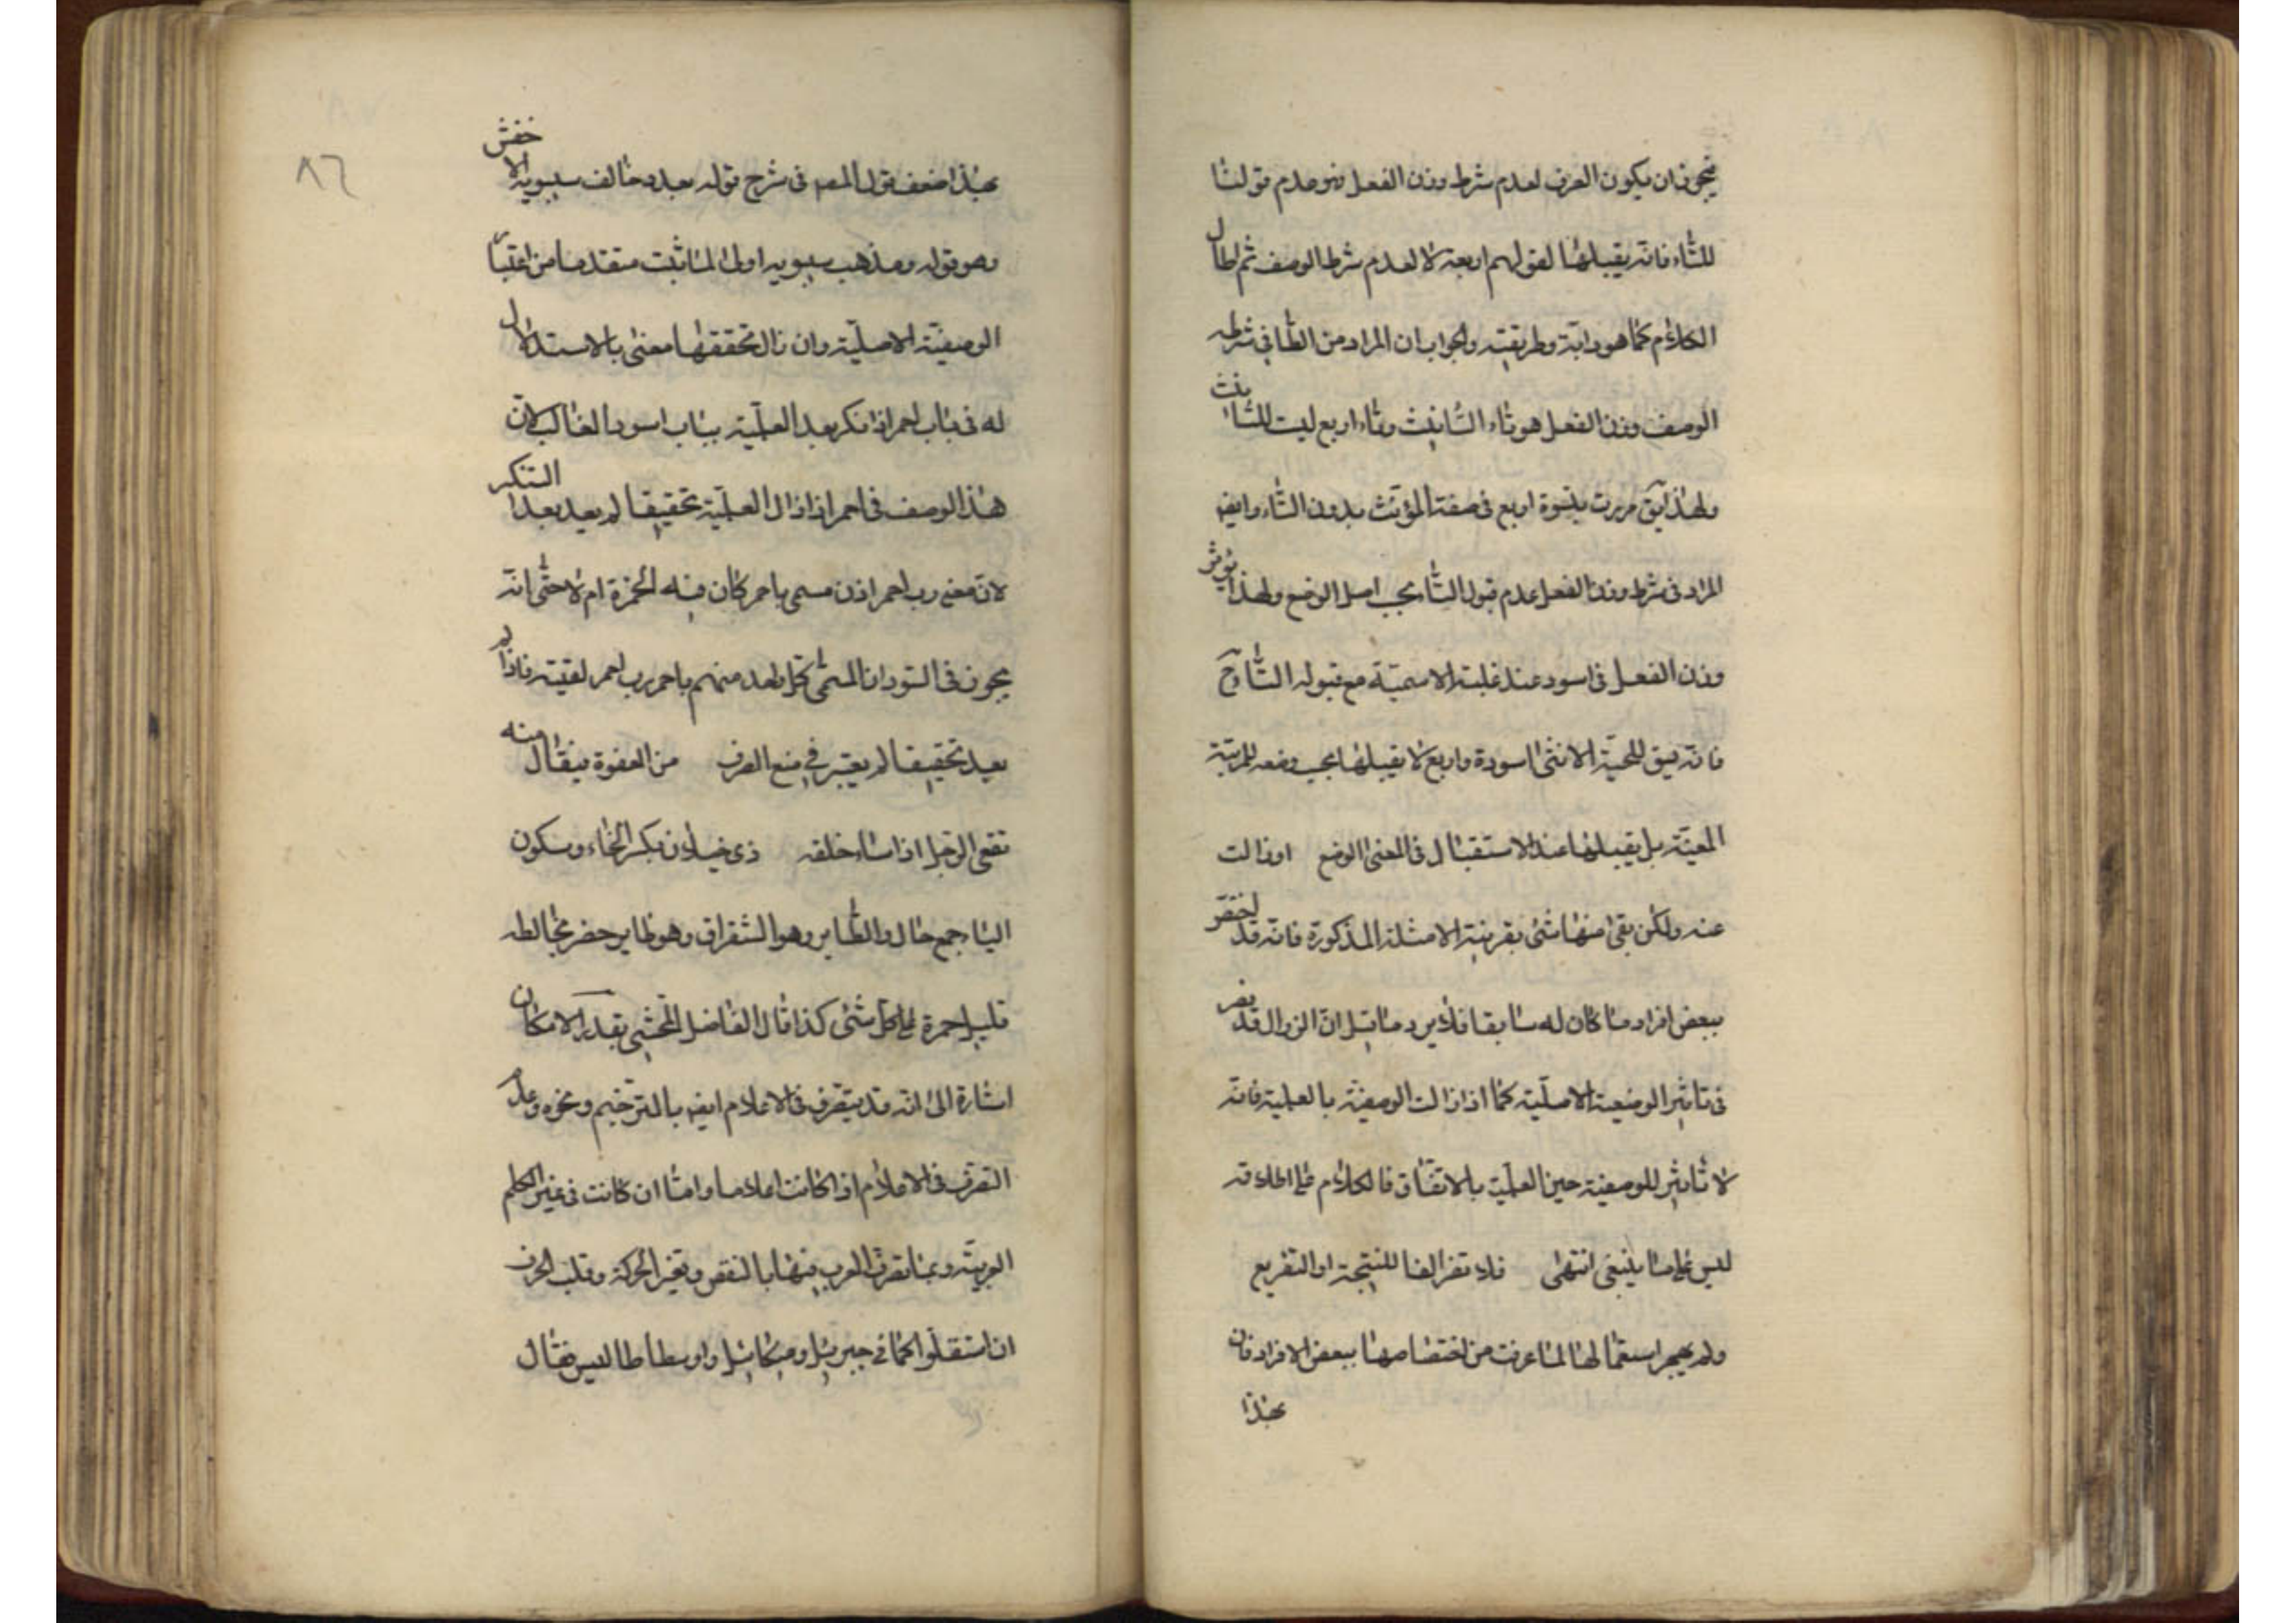 فيجوز ان يكون الصرف لعدم شرط وزن الفعل وهو عدم قولنا
للتاء فانه يقبلها لقولهم اربعة لا لعدم شرط الوصف ثم اطال
الكلام كما هو دابه وطريقته والجواب ان المراد من التا في شرط
الوصف وزن الفعل هو تاء التانيث وتاء اربع ليت للتانيث
ولهذا يق مررت بنسوة اربع في صفة المؤنث بدون التاء وايضه
المراد في شرط وزن الفعل عدم قبول التا بحسب اصل الوضع ولهذا يؤثر
وزن الفعل في اسود عند غلبة الاسمية مع قبوله التا ح
فانه يق للحية الانثى اسودة واربع لا يقبلها بحسب وضعه للمرتبة
المعينة بل يقبلها عند الاستقبال في المعنى الوضع اوزالت
عنه ولكن بقى منها شئ بقرينة الامثلة المذكورة فانه قد اختصر
ببعض افراد ما كان له سابقا فلا يرد ما قيل ان الزوال قد يضر
في تاثير الوضعية الاصلية كما اذا زالت الوصفية بالعلمية فانه
لا تاثير للوصفية حين العلمية بالاتفاق فالكلام على اطلاقه
ليس على ما ينبغى انتهى فلا تضر الفا للنتيجة او التفريع
ولم يهجر استعمالها لما عرفت من اختصاصها ببعض الافراد فان
بهذا
٨٦
بهذا ضعف قول المصه في شرح قوله بعد وخالف سيبويه الاخفش
وهو قوله ومذهب سيبويه اولى لما ثبت متقدما من اعتبار
الوصفية الاصلية وان زال تحققها معنى بالاستدلال
له في باب احمر اذا نكر بعد العلمية بباب اسود الغالب لان
هذا الوصف في احمر اذا زال العلمية تحقيقا لم يعد بعد التنكر
لان معنى رب احمر اذن مسمى باحمر كان فيه الحمرة ام لا حتى انه
يجوز في السودان المسمى كل واحد منهم باحمر رب احمر لقيته فاذا لم
يعد تحقيقا لم يعتبر في منع الصرف من العفوة فيقال منه
تفعى الرجل اذا ساء خلقه ذى خيلان بكسر الخاء وسكون
الياء جمع خال والطاير وهو الشقراق وهو طاير حضر يخالطه
قليل حمرة على كل شئ كذا قال الفاضل المحشى بقدر الامكان
اشارة الى انه قد يتصرف في الاعلام ايضه بالترخيم ونحوه وعدم
التصرف في الاعلام اذا كانت اعلاما واما ان كانت في غير الكلم
العربية وبما تصرف العرب فيها بالنقص وتغير الحركة وقلب الحرف
ان استقلوا كما في جبرئيل وميكائيل واوسطاطاليس فقال